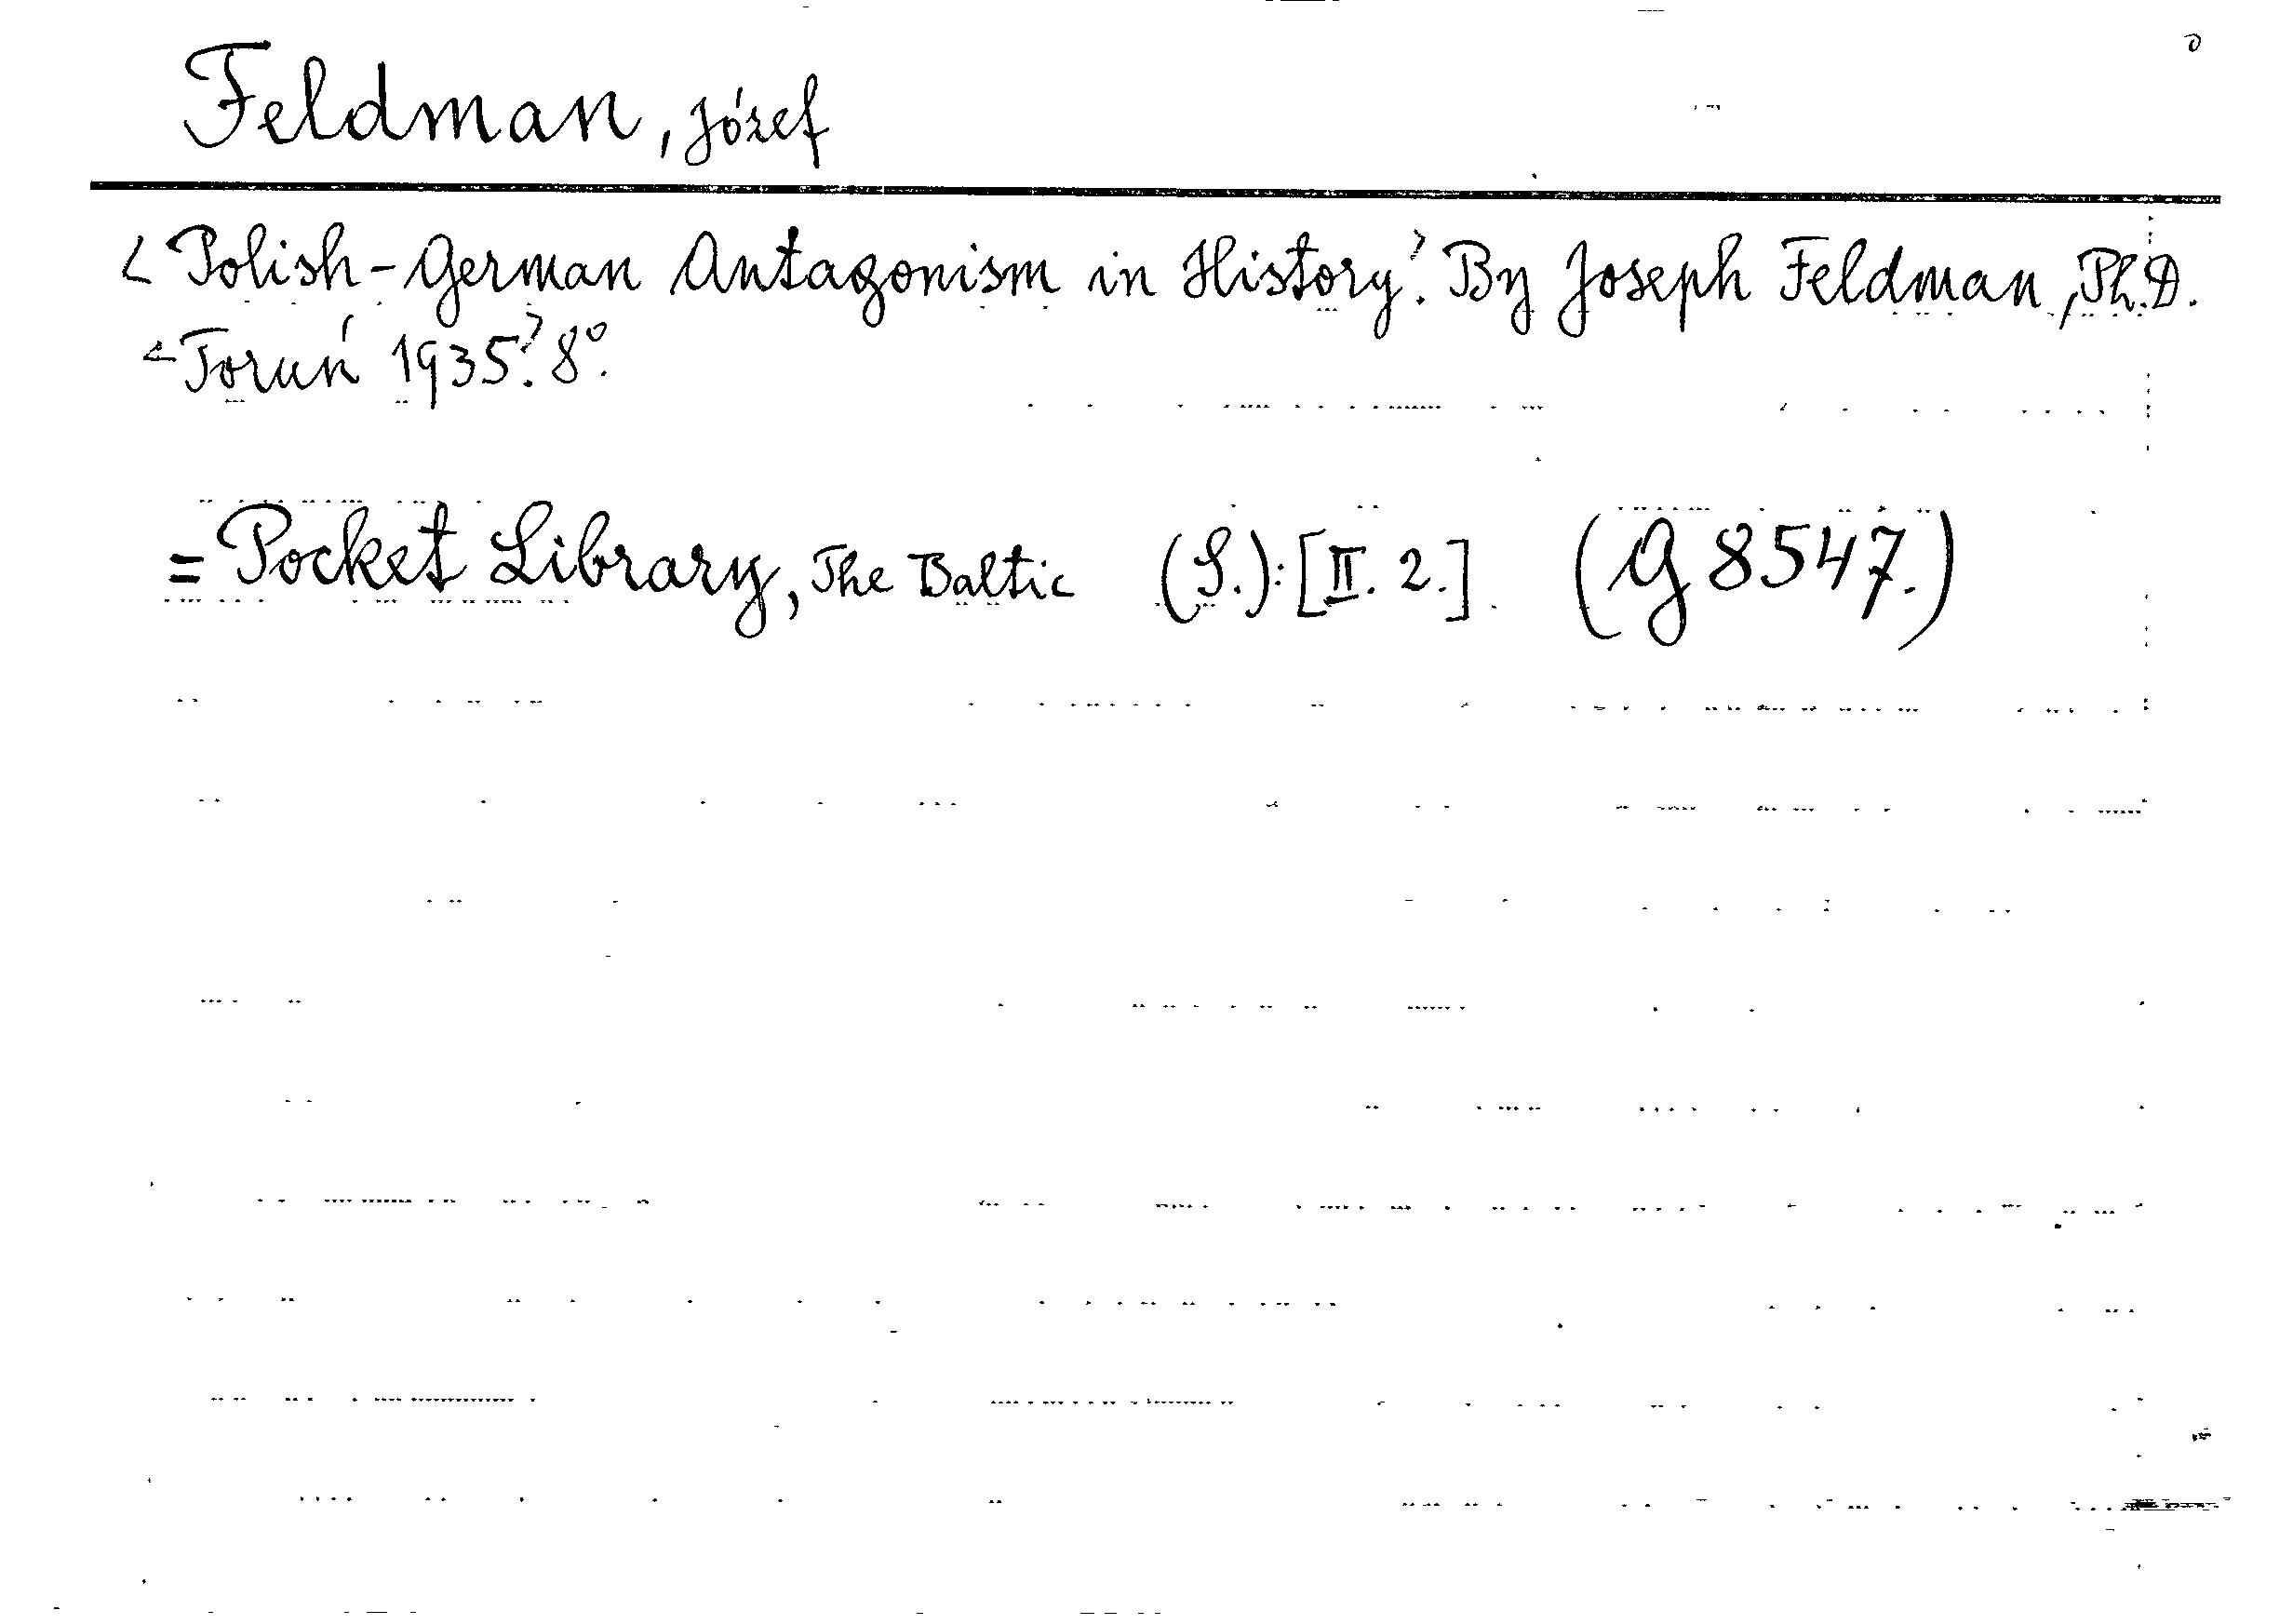 Feldman, Józef
<Polish-German Antagonism in History>. By Joseph Feldman, Ph.D.
<Toruń 1935>. 8°.
= Pocket Library, The Baltic (S.): [II. 2.] (G 8547.)